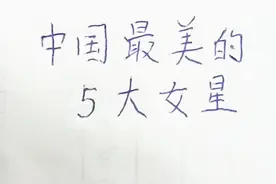 中国最美的
5大女星